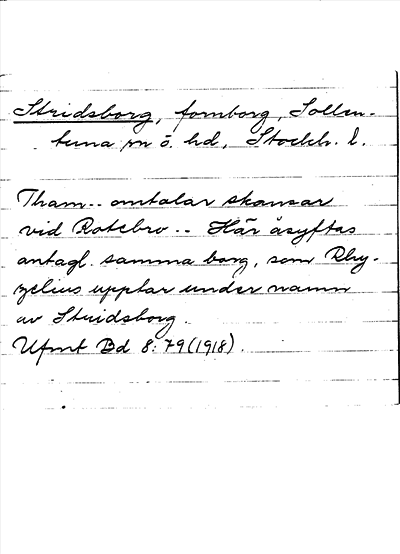 Stridsborg, fornborg, Sollen-
tuna sn ö. hd, Stockh. l.
Tham.. omtalar skansar
vid Rotebro.. Här åsyftas
antagl. samma borg, som Rhy-
zelius upptar under namn
av Stridsborg.
Ufmt Bd 8:79(1918).